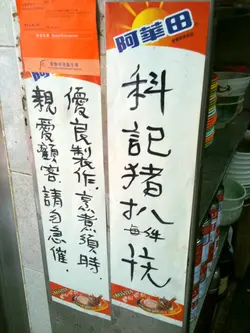 阿華田
科記猪扒每件
優良製作.烹煮須時.
親愛顧客請勿急催.